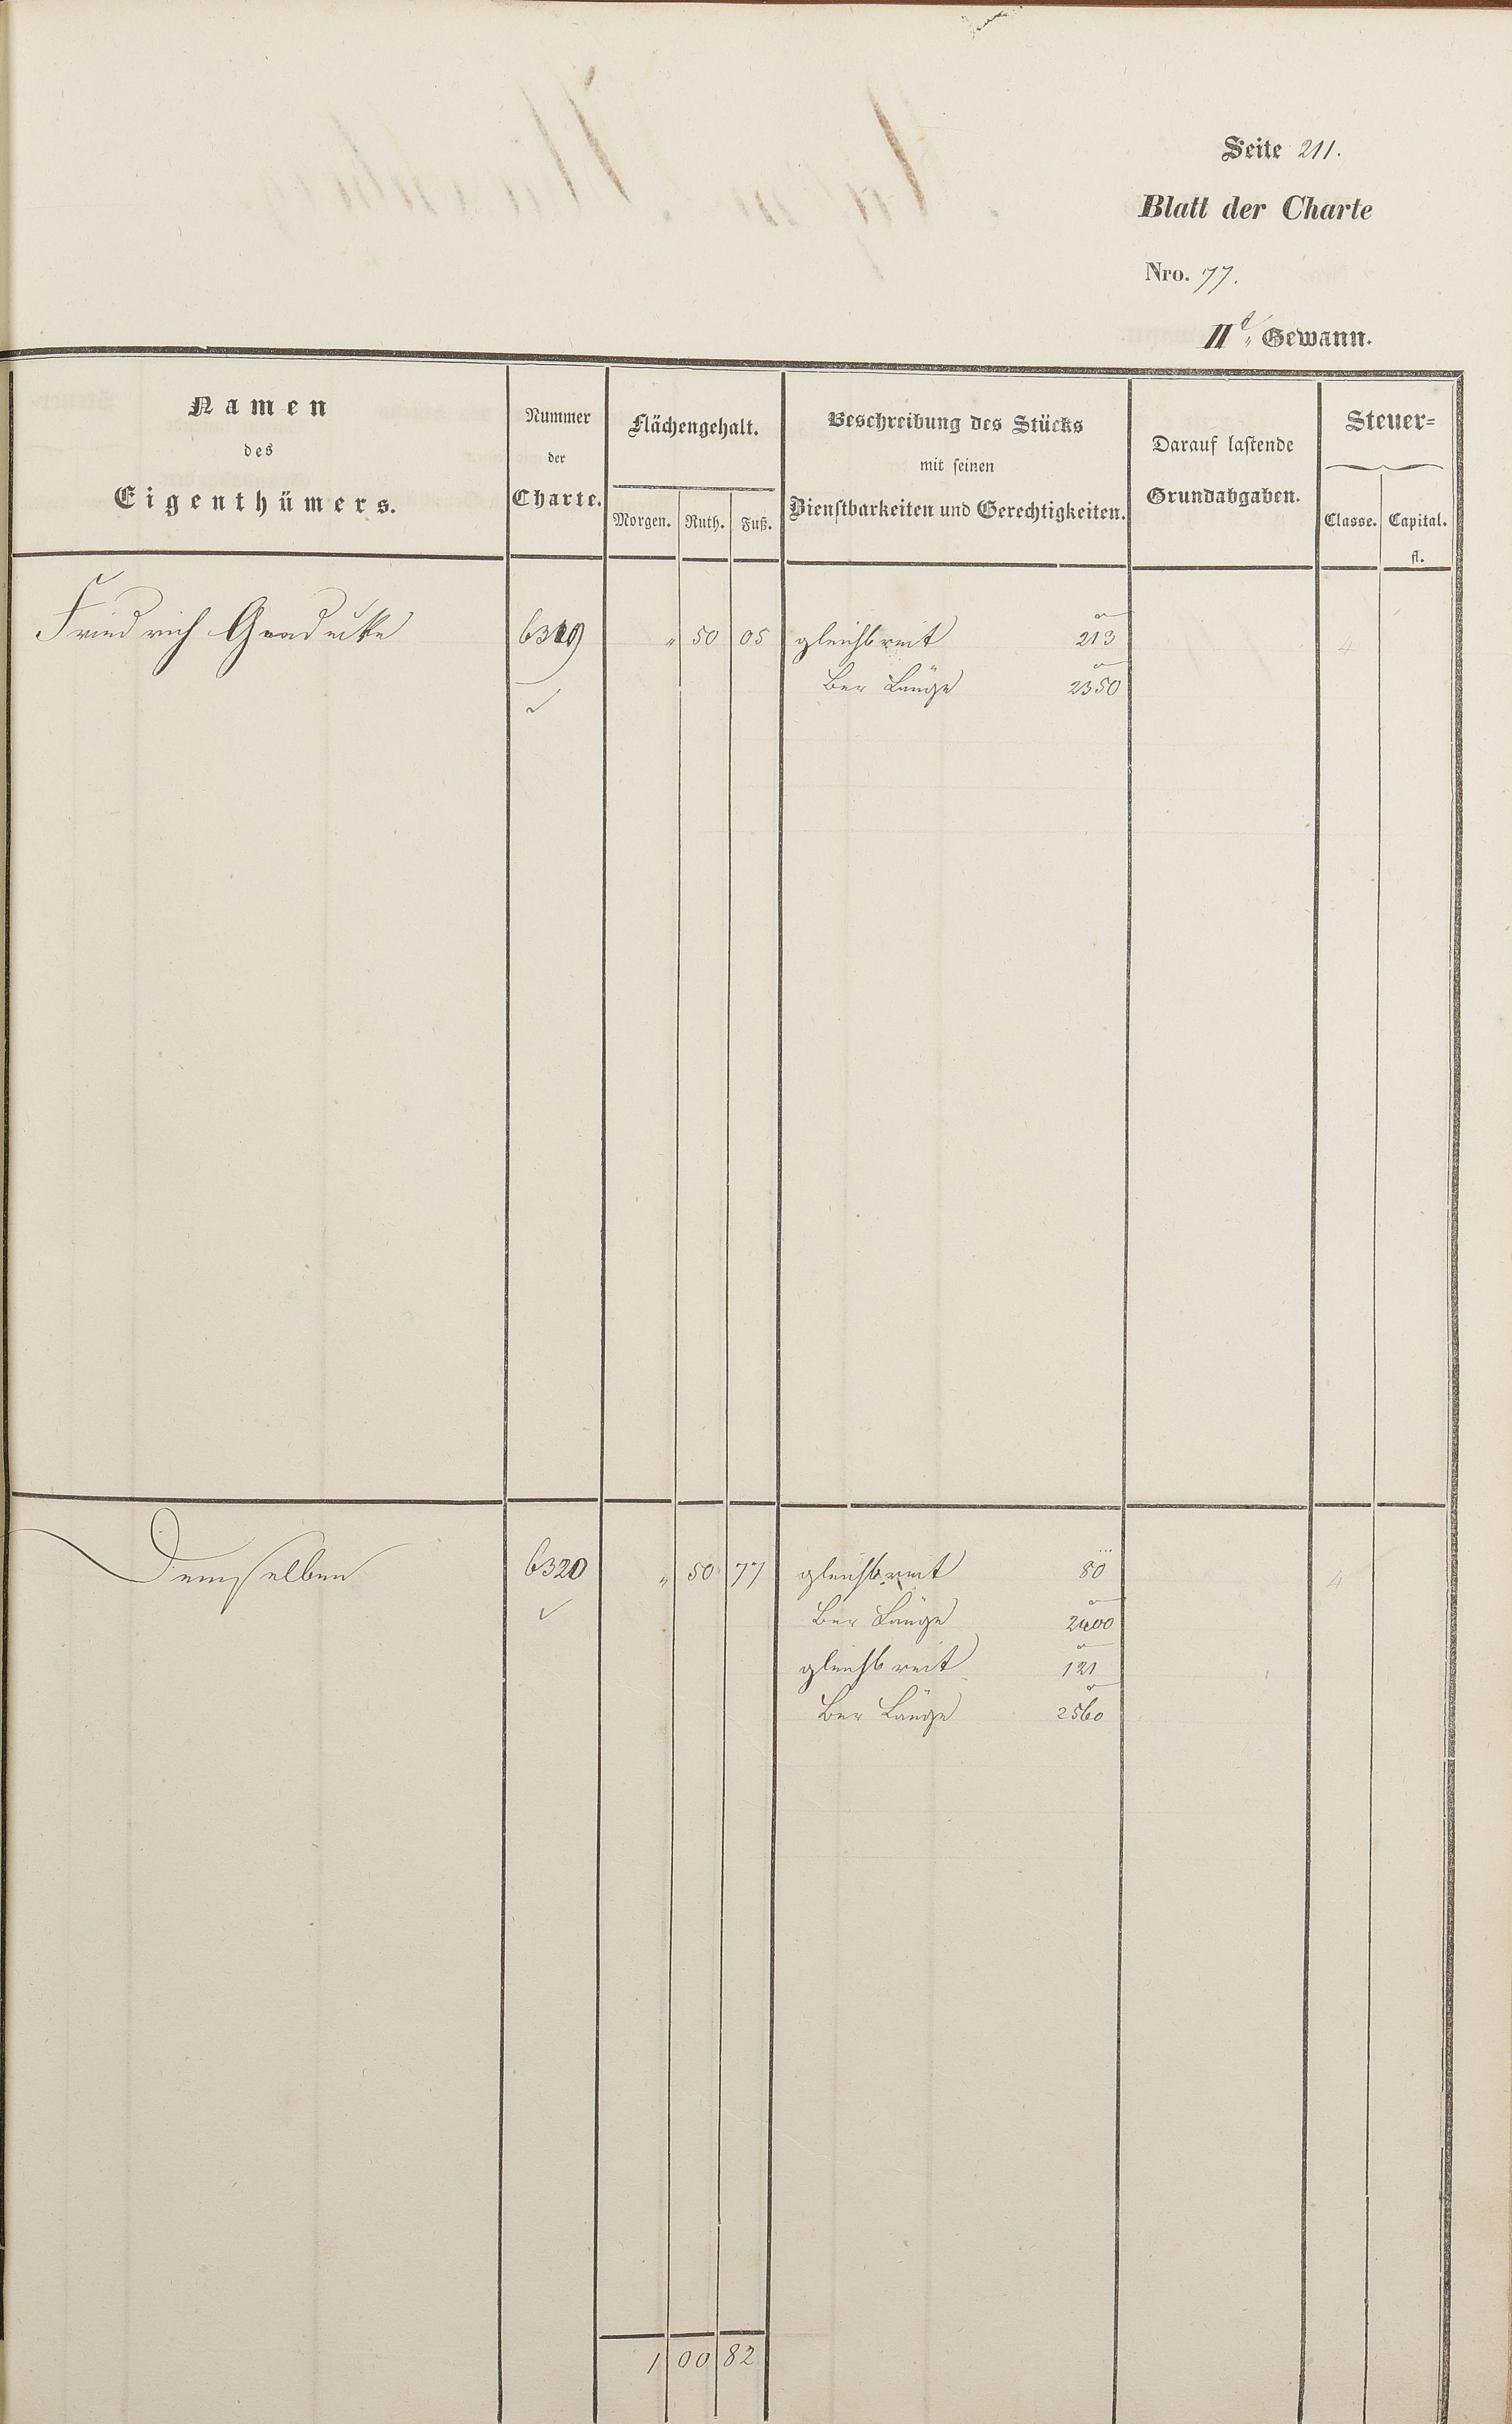 Seite 211.
Blatt der Charte
Nro. 77.
IIt. Gewann.
Namen
des
Eigenthümers.
Nummer
der
Charte.
Flächengehalt.
Morgen. Ruth. Fuß.
Beschreibung des Stücks
mit seinen
Dienstbarkeiten und Gerechtigkeiten.
Darauf lastende
Grundabgaben.
Steuer=
Classe. Capital.
fl.
Friedrich 6319 " 50 05 gleichbreit 213 4
Ber Länge 2350
Demselben 6320 " 50 77 gleichbreit 80 4
Ber Länge 2400
gleichbreit 121
Ber Länge 2560
1 00 82